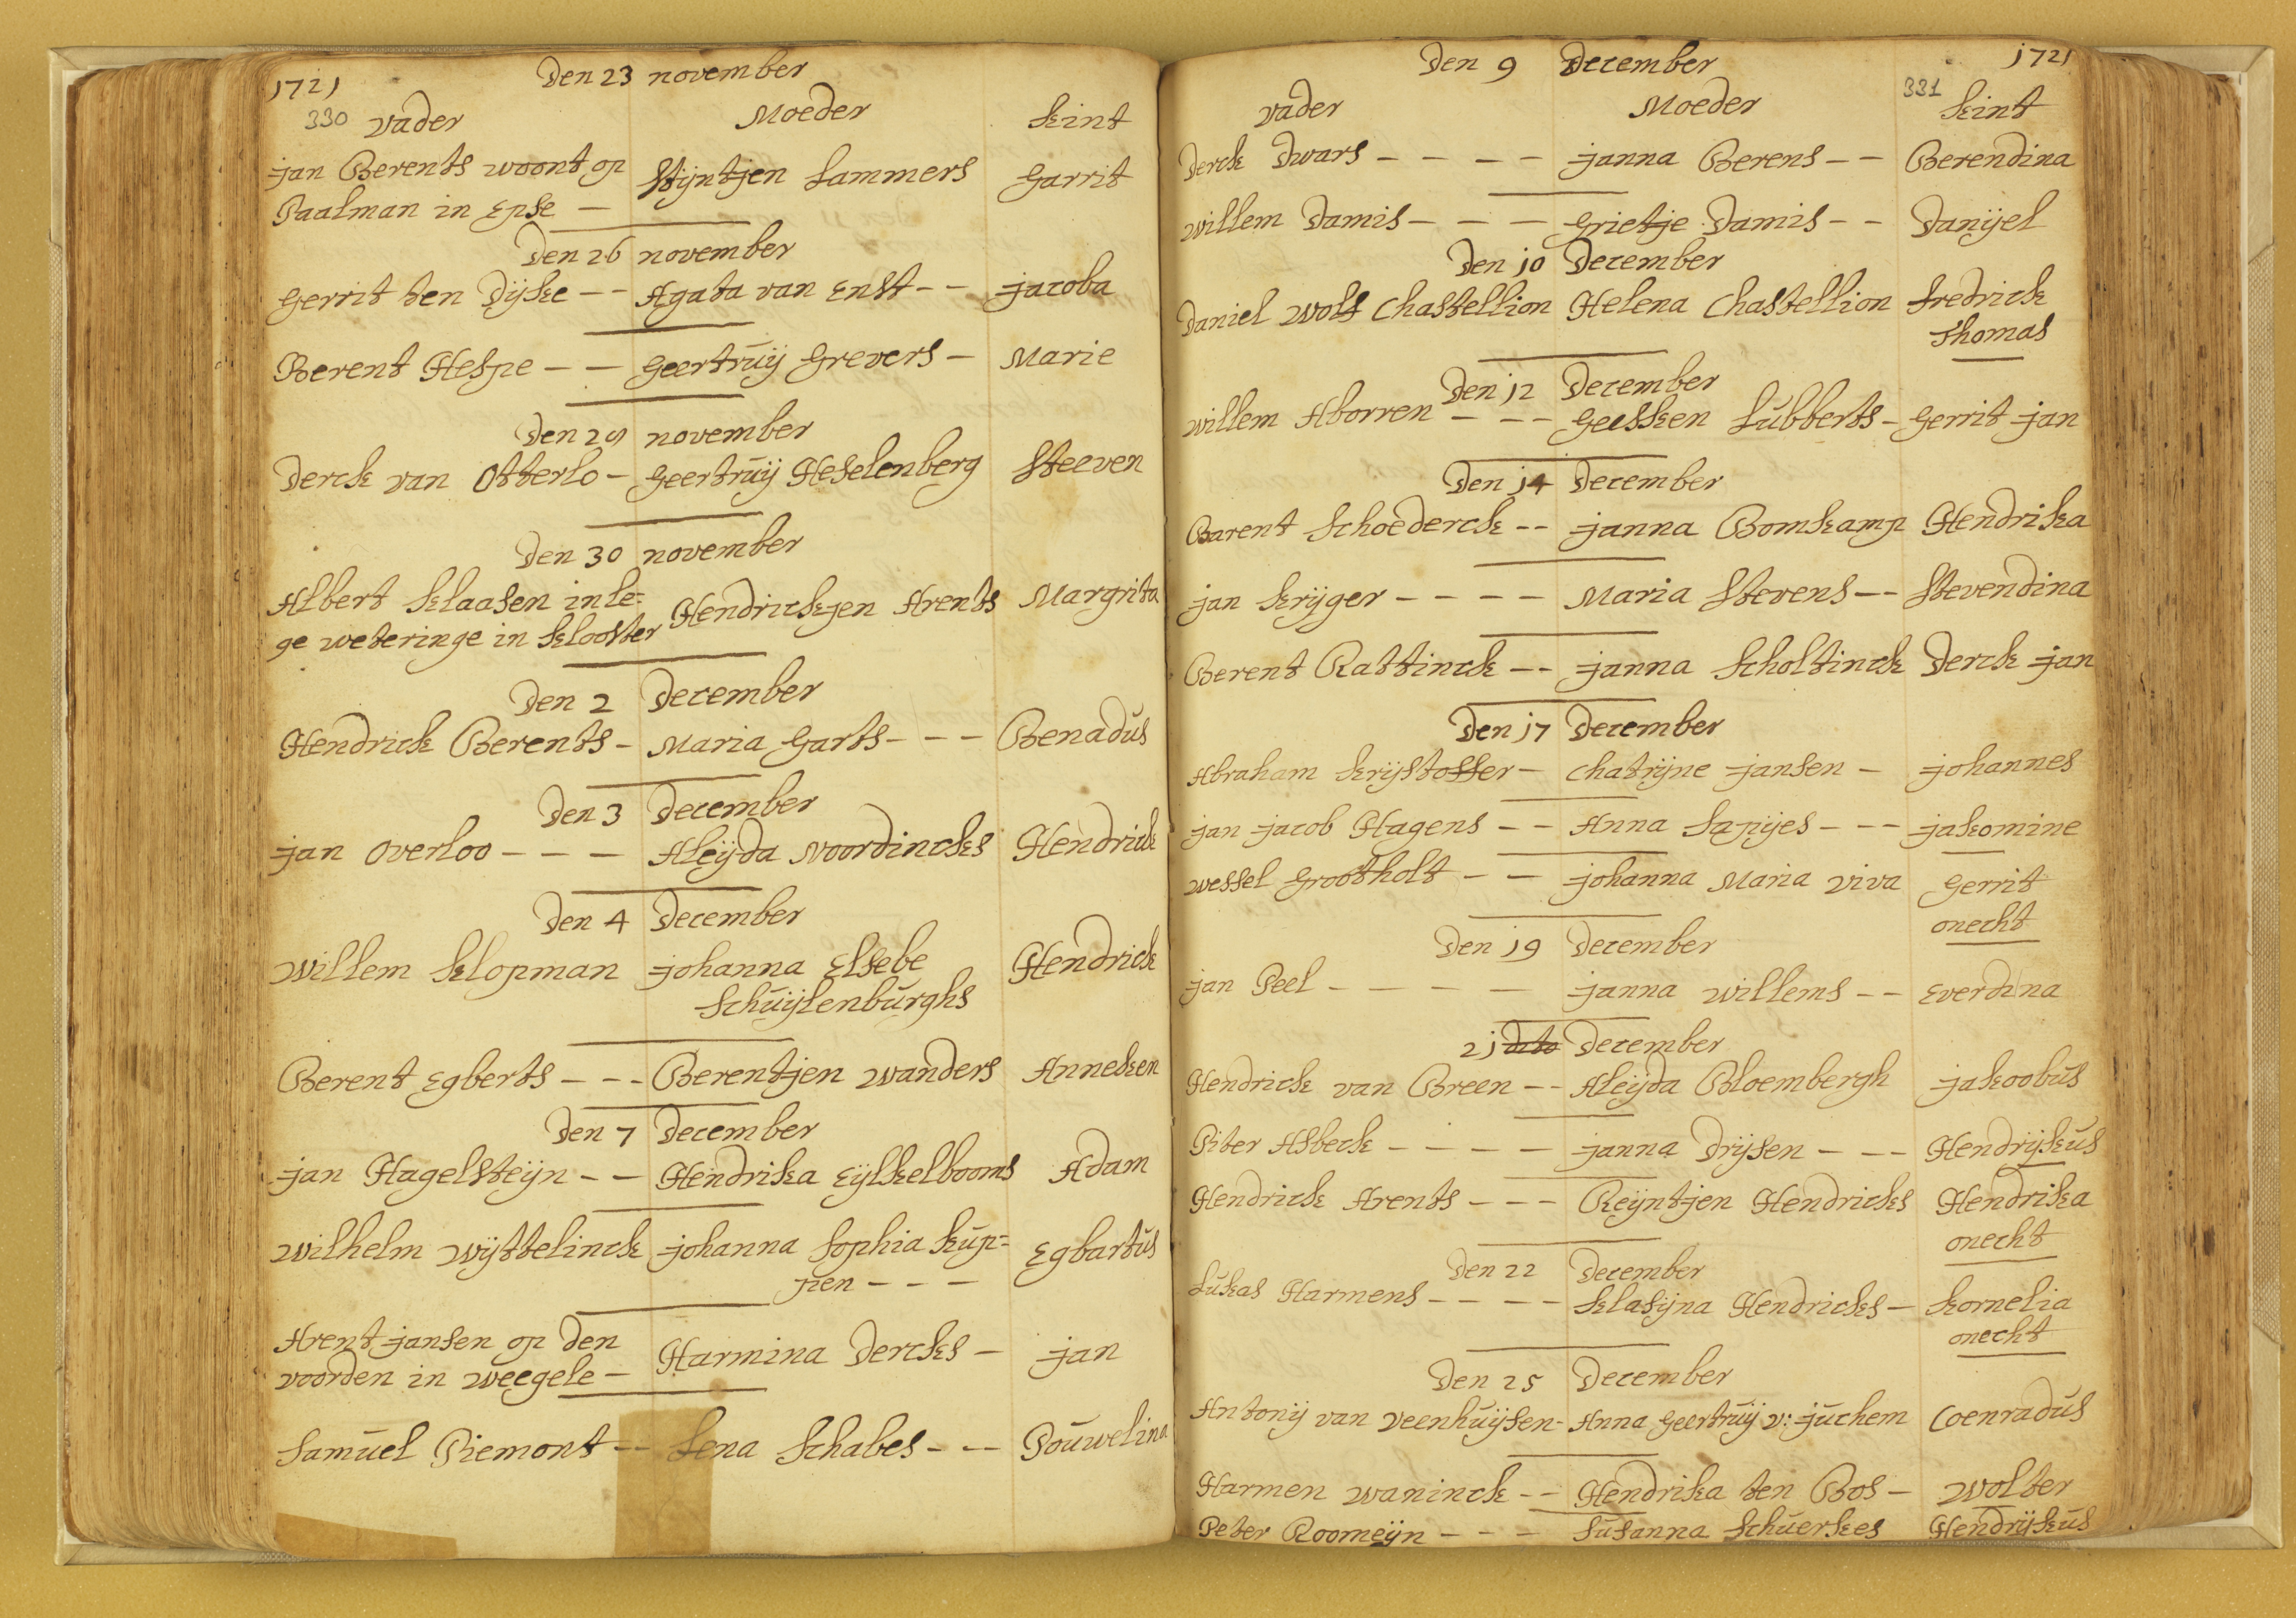 1721
Den 23 november
330 vader Moeder Kint
jan Berents woont op Stijntjen Lammers Garrit
Paalman in Epse —
Den 26 november
Gerrit ten Dijke -- Agata van Enst -- jacoba
Berent Hespe -- Geertruij Grevers - Marie
Den 29 november
Derck van Otterlo - Geertruij Heselenberg Steeven
Den 30 november
Albert Klaasen in le= Hendrickjen Arents Margrita
ge weteringe in Klooster
Den 2 December
Hendrick Berents - Maria Garts --- Benadus
Den 3 December
jan Overloo --- Aleijda Noordincks Hendrick
Den 4 December
Willem Klopman johanna Elsebe Hendrick
Schuijlenburghs
Berent Egberts --- Berentjen Wanders Anneken
Den 7 December
jan Hagelsteijn -- Hendrika Eijkelbooms Adam
Wilhelm Wijttelinck johanna Sophia Kup= Egbartus
pen ---
Arent jansen op den Harmina Dercks - jan
voorden in weegele -
Samuel Piemont -- Lena Schabes -- Pouwelina
Den 9 December 1721
331
vader Moeder Kint
Derck Dwars ---- janna Berens -- Berendina
Willem Damis --- Grietje Damis -- Danijel
Den 10 December
Daniel Wolf Chastellion Helena Chastellion fredrick
Thomas
Den 12 December
Willem Aborren --- Geesken Lubberts - Gerrit jan
Den 14 December
Barent Schoederck -- janna Bomkamp Hendrika
jan Krijger ---- Maria Stevens -- Stevendina
Berent Rattinck -- janna Scholtinck Derck jan
Den 17 December
Abraham Krijstoffer - Chatrijne jansen - johannes
jan jacob Hagens -- Anna Sapijes --- jakomine
Wessel Grootholt -- johanna Maria viva Gerrit
onecht
Den 19 December
jan Peel ---- janna Willems -- Everdina
21 dito December
Hendrick van Breen -- Aleijda Bloembergh jakoobus
Piter Asbeck ---- janna Drijsen --- Hendrijkus
Hendrick Arents --- Reijntjen Hendricks Hendrika
onecht
Den 22 December
Lukas Harmens ---- Klasijna Hendricks - Kornelia
onecht
Den 25 December
Antonij van Veenhuijsen - Anna Geertruij v: juchem Coenradus
Harmen Waninck -- Hendrika ten Bos - Wolter
Peter Roomeijn --- Susanna Schuerkes Hendrijkus